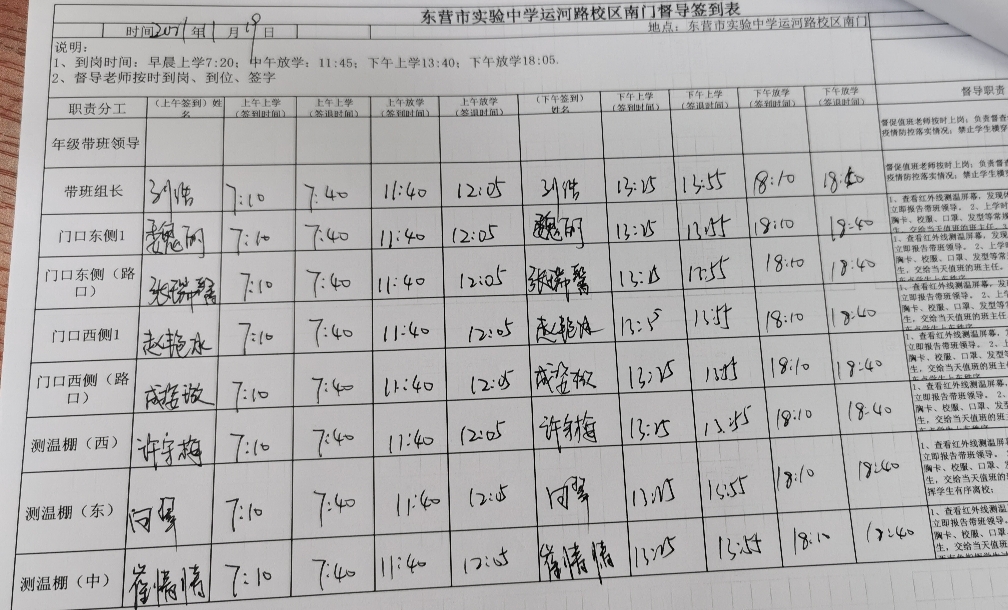 东营市实验中学运河路校区南门督导签到表
时间2021年11月19日 地点：东营市实验中学运河路校区南门
说明：
1、到岗时间：早晨上学7:20；中午放学：11:45；下午上学13:40；下午放学18:05.
2、督导老师按时到岗、到位、签字
职责分工 （上午签到）姓名 上午上学（签到时间） 上午上学（签退时间） 上午放学（签到时间） 上午放学（签退时间） （下午签到）姓名 下午上学（签到时间） 下午上学（签退时间） 下午放学（签到时间） 下午放学（签退时间） 督导职责
年级带班领导 督促值班老师按时上岗；负责督查
疫情防控落实情况；禁止学生横穿
带班组长 刘浩 7:10 7:40 11:40 12:05 刘浩 13:25 13:55 18:10 18:40 督促值班老师按时上岗；负责督查
疫情防控落实情况；禁止学生横穿
门口东侧1 魏丽 7:10 7:40 11:40 12:05 魏丽 13:25 13:55 18:10 18:40 1、查看红外线测温屏幕，发现
立即报告带班领导。 2、上学时
胸卡、校服、口罩、发型等常规
生，交给当天值班的班主任。
门口东侧（路口） 张瑞馨 7:10 7:40 11:40 12:05 张瑞馨 13:25 13:55 18:10 18:40 1、查看红外线测温屏幕，发现
立即报告带班领导。 2、上学
胸卡、校服、口罩、发型等
生，交给当天值班的班主任。
门口西侧1 赵艳冰 7:10 7:40 11:40 12:05 赵艳冰 13:55 18:10 18:40 1、查看红外线测温屏幕，发
立即报告带班领导。 2、上学
胸卡、校服、口罩、发型等
生，交给当天值班的班主任
门口西侧（路口） 7:10 7:40 11:40 12:05 13:25 13:55 18:10 18:40 1、查看红外线测温屏幕，发
立即报告带班领导。 2、
胸卡、校服、口罩、发型
生，交给当天值班的班主
测温棚（西） 许宗梅 7:10 7:40 11:40 12:05 许宗梅 13:25 13:55 18:10 18:40 1、查看红外线测温屏幕，
立即报告带班领导。 2、
胸卡、校服、口罩、发
生，交给当天值班的班
测温棚（东） 7:10 7:40 11:40 12:05 13:25 13:55 18:10 18:40 1、查看红外线测温屏
立即报告带班领导。
胸卡、校服、口罩、
生，交给当天值班的
挥学生有序离校；
测温棚（中） 崔情情 7:10 7:40 11:40 12:05 崔情情 13:25 13:55 18:10 18:40 1、查看红外线测温
立即报告带班领导。
胸卡、校服、口罩、
生，交给当天值班